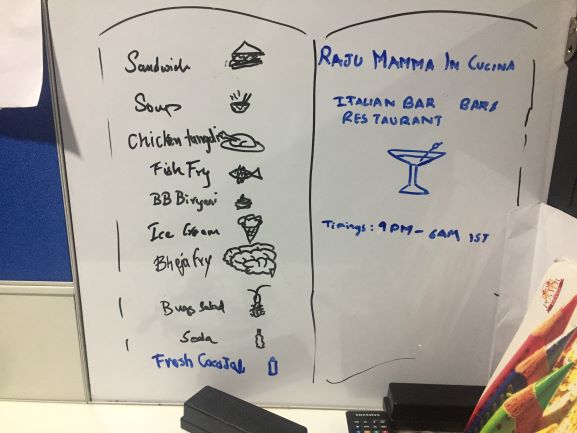 Sandwich
Soup
Chicken tangdi
Fish Fry
BB Biryani
Ice Cream
Bheja Fry
Bugs Salad
Soda
Fresh
RAJU MAMMA IN CUCINA
ITALIAN BAR
RESTAURANT
Timings: 9 PM - 6AM IST